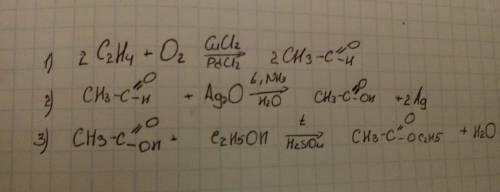 1) 2 C2H4 + O2 CuCl2 PdCl2 → 2CH3-C=O -H
2) CH3-C=O -H + Ag2O t, NH3 H2O → CH3-C=O -OH + 2Ag
3) CH3-C=O -OH + C2H5OH t H2SO4 → CH3-C=O -OC2H5 + H2O